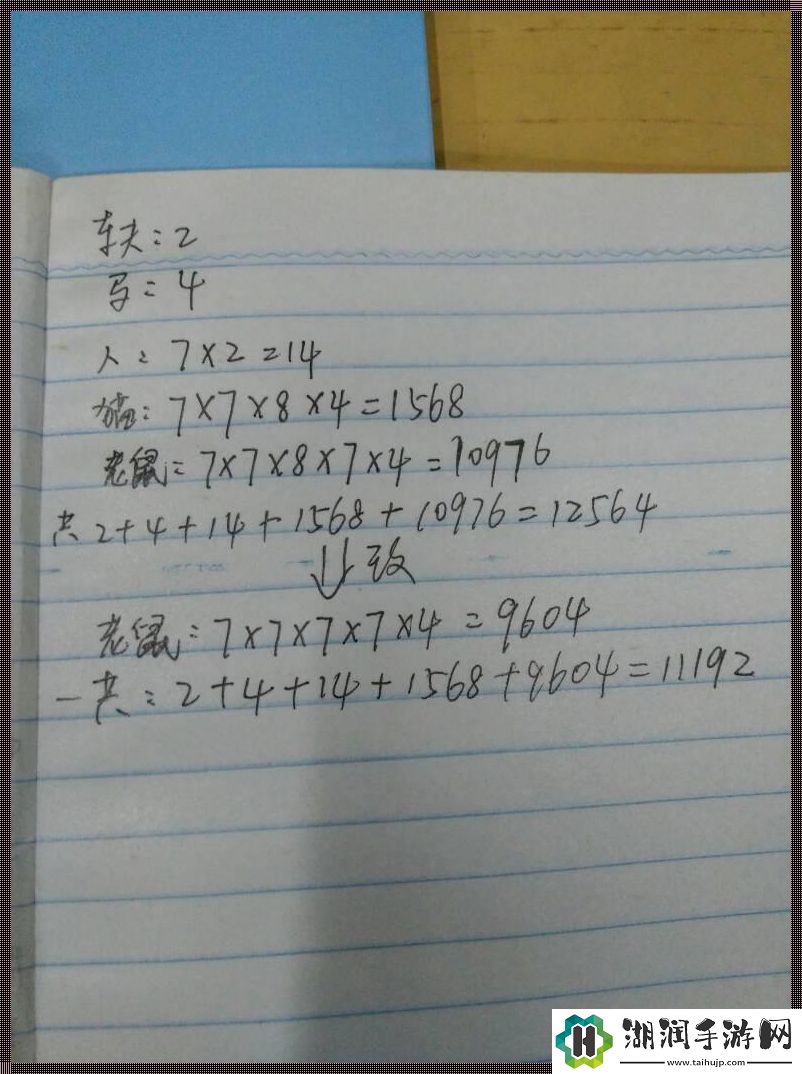 车夫:2
马:4
人:7×2=14
猫:7×7×8×4=1568
老鼠:7×7×8×7×4=10976
共2+4+14+1568+10976=12564
↓改
老鼠:7×7×7×7×4=9604
一共:2+4+14+1568+9604=11192
湖润手游网
www.taihujp.com